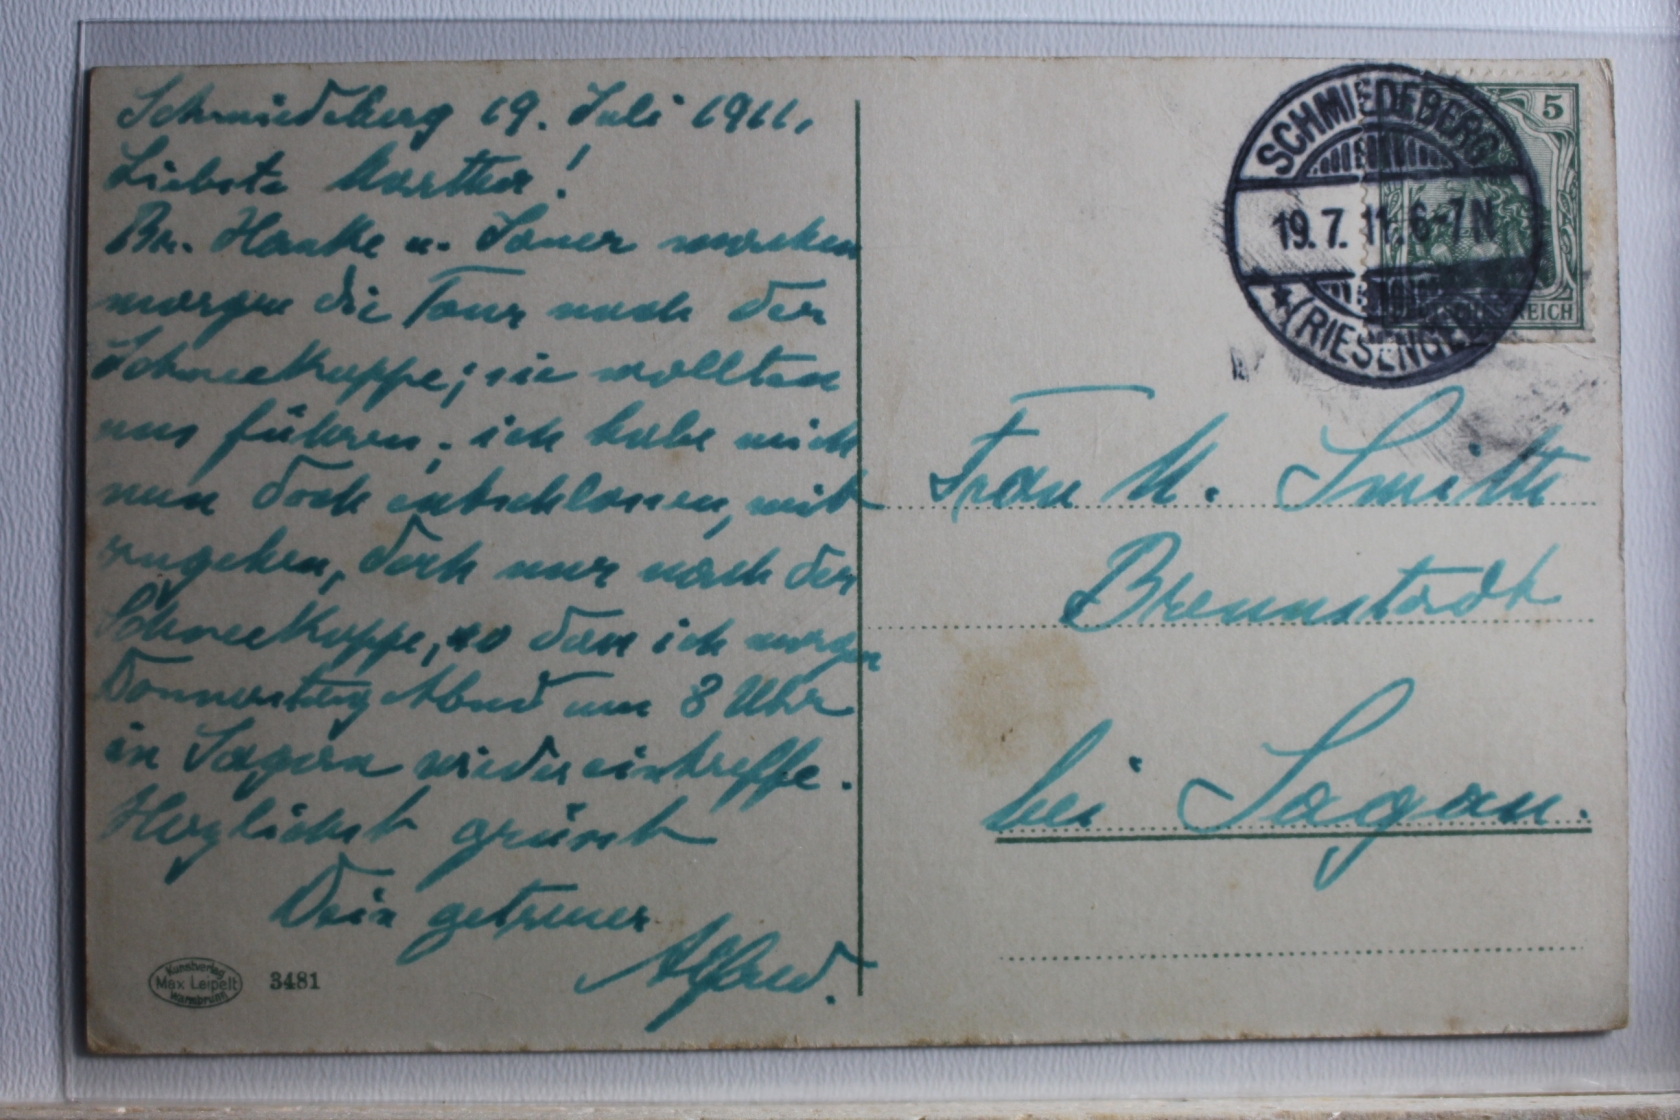 Schmiedeberg 19. Juli 1911.
Liebste Martha!
Br. Hanke u. Janer machen
morgen die Tour nach der
Schneekoppe; sie wollten
uns führen; ich habe mich
nun doch entschlossen, mit
zugehen, doch nur nach der
Schneekoppe, so dass ich morgen
Donnerstag Abend um 8 Uhr
in Sagan wieder eintreffe.
Herzlichst grüsst
Dein getreuer
Alfred.
Kunstverlag
Max Leipelt
Warmbrunn
3481
SCHMIEDEBERG
19.7.11.6-7N
*(RIESENGEB
5
REICH
Frau M. Smith
Brennstadt
bei Sagan.